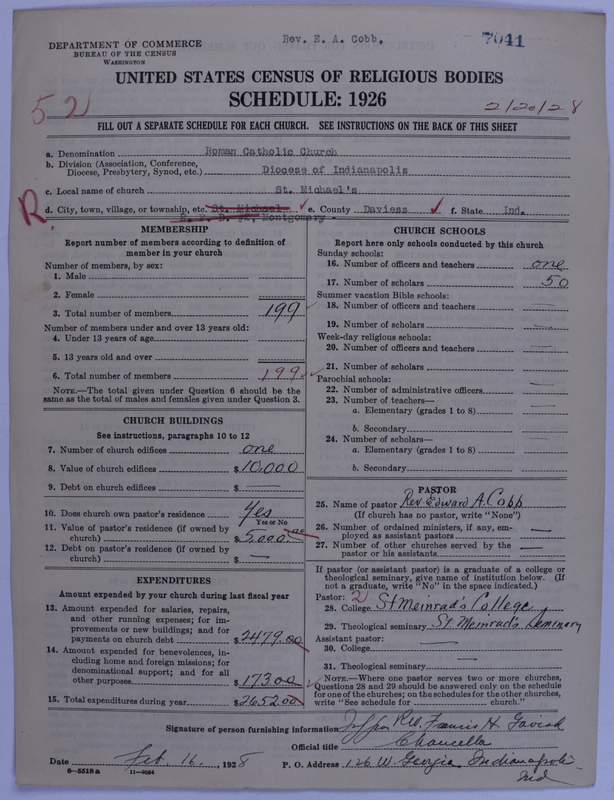 Rev. E. A. Cobb,
7041
DEPARTMENT OF COMMERCE
BUREAU OF THE CENSUS
WASHINGTON
UNITED STATES CENSUS OF RELIGIOUS BODIES
SCHEDULE: 1926
52
2/20/28
FILL OUT A SEPARATE SCHEDULE FOR EACH CHURCH. SEE INSTRUCTIONS ON THE BACK OF THIS SHEET
a. Denomination Roman Catholic Church
b. Division (Association, Conference, Diocese, Presbytery, Synod, etc.) Diocese of Indianapolis
c. Local name of church St. Michael's
R.
d. City, town, village, or township, etc. St. Michael e. County Daviess f. State Ind.
Montgomery
MEMBERSHIP
Report number of members according to definition of
member in your church
Number of members, by sex:
1. Male
2. Female
3. Total number of members 199
Number of members under and over 13 years old:
4. Under 13 years of age
5. 13 years old and over
6. Total number of members 199
NOTE.—The total given under Question 6 should be
same as the total of males and females given under Question 3.
CHURCH BUILDINGS
See instructions, paragraphs 10 to 12
7. Number of church edifices one
8. Value of church edifices $10,000
9. Debt on church edifices $ —
10. Does church own pastor's residence Yes
Yes or No
11. Value of pastor's residence (if owned by
church) $5,000.00
12. Debt on pastor's residence (if owned by
church) $ —
EXPENDITURES
Amount expended by your church during last fiscal year
13. Amount expended for salaries, repairs,
and other running expenses; for im-
provements or new buildings; and for
payments on church debt $2479.00
14. Amount expended for benevolences, in-
cluding home and foreign missions; for
denominational support; and for all
other purposes $173.00
15. Total expenditures during year $2652.00
CHURCH SCHOOLS
Report here only schools conducted by this church
Sunday schools:
16. Number of officers and teachers one
17. Number of scholars 50
Summer vacation Bible schools:
18. Number of officers and teachers —
19. Number of scholars —
Week-day religious schools:
20. Number of officers and teachers —
21. Number of scholars —
Parochial schools:
22. Number of administrative officers —
23. Number of teachers—
a. Elementary (grades 1 to 8) —
b. Secondary —
24. Number of scholars—
a. Elementary (grades 1 to 8) —
b. Secondary —
PASTOR
25. Name of pastor Rev. Edward A. Cobb
(If church has no pastor, write "None")
26. Number of ordained ministers, if any, em-
ployed as assistant pastors —
27. Number of other churches served by the
pastor or his assistants —
If pastor (or assistant pastor) is a graduate of a college or
theological seminary, give name of institution below. (If
not a graduate, write "No" in the space indicated.)
Pastor: 2
28. College St Meinrad's College
29. Theological seminary St. Meinrad's Seminary
Assistant pastor:
30. College —
31. Theological seminary —
NOTE.—Where one pastor serves two or more churches,
Questions 28 and 29 should be answered only on the schedule
for one of the churches; on the schedules for the other churches,
write "See schedule for church."
Signature of person furnishing information Rev. Francis H. Gavisk
Official title Chancellor
Date Feb. 16, 1928 P. O. Address 126 W Georgia, Indianapolis
Ind
6—5518a 11—9054